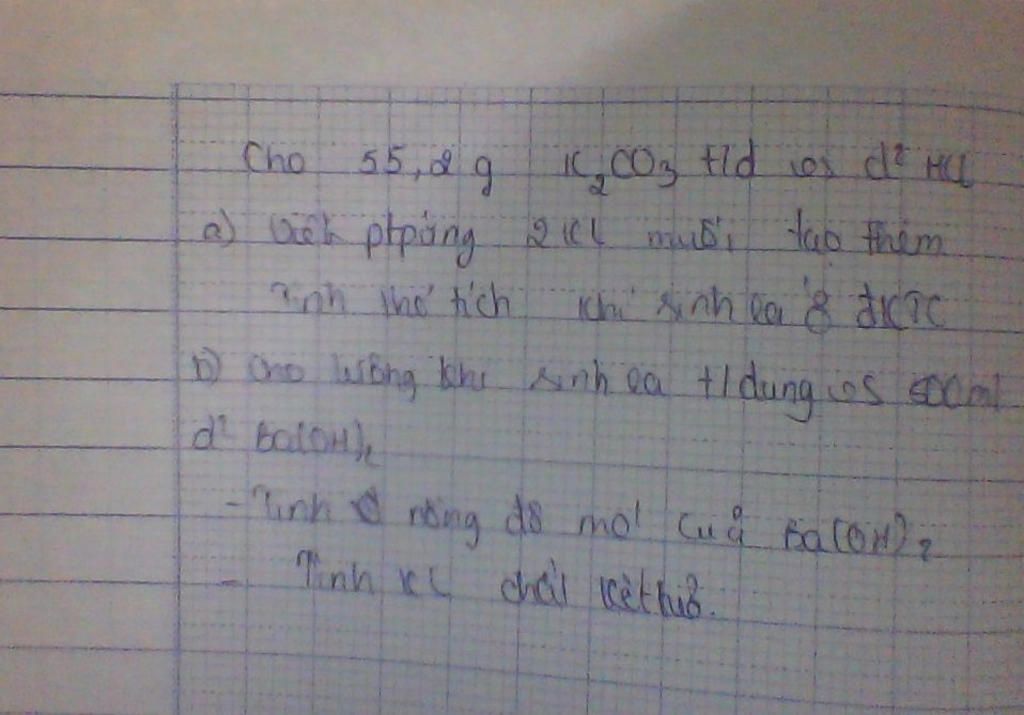 Cho 55,2 g K₂CO₃ t/d với d² HCl
a) Viết ptpứng 2 KL muối tạo thêm
Tính thể tích khí sinh ra ở đKTC
b) Cho lượng khí sinh ra t/dụng với 500ml
d² Ba(OH)₂
- Tính nồng độ mol của Ba(OH)₂
- Tính KL chất kết tuả.